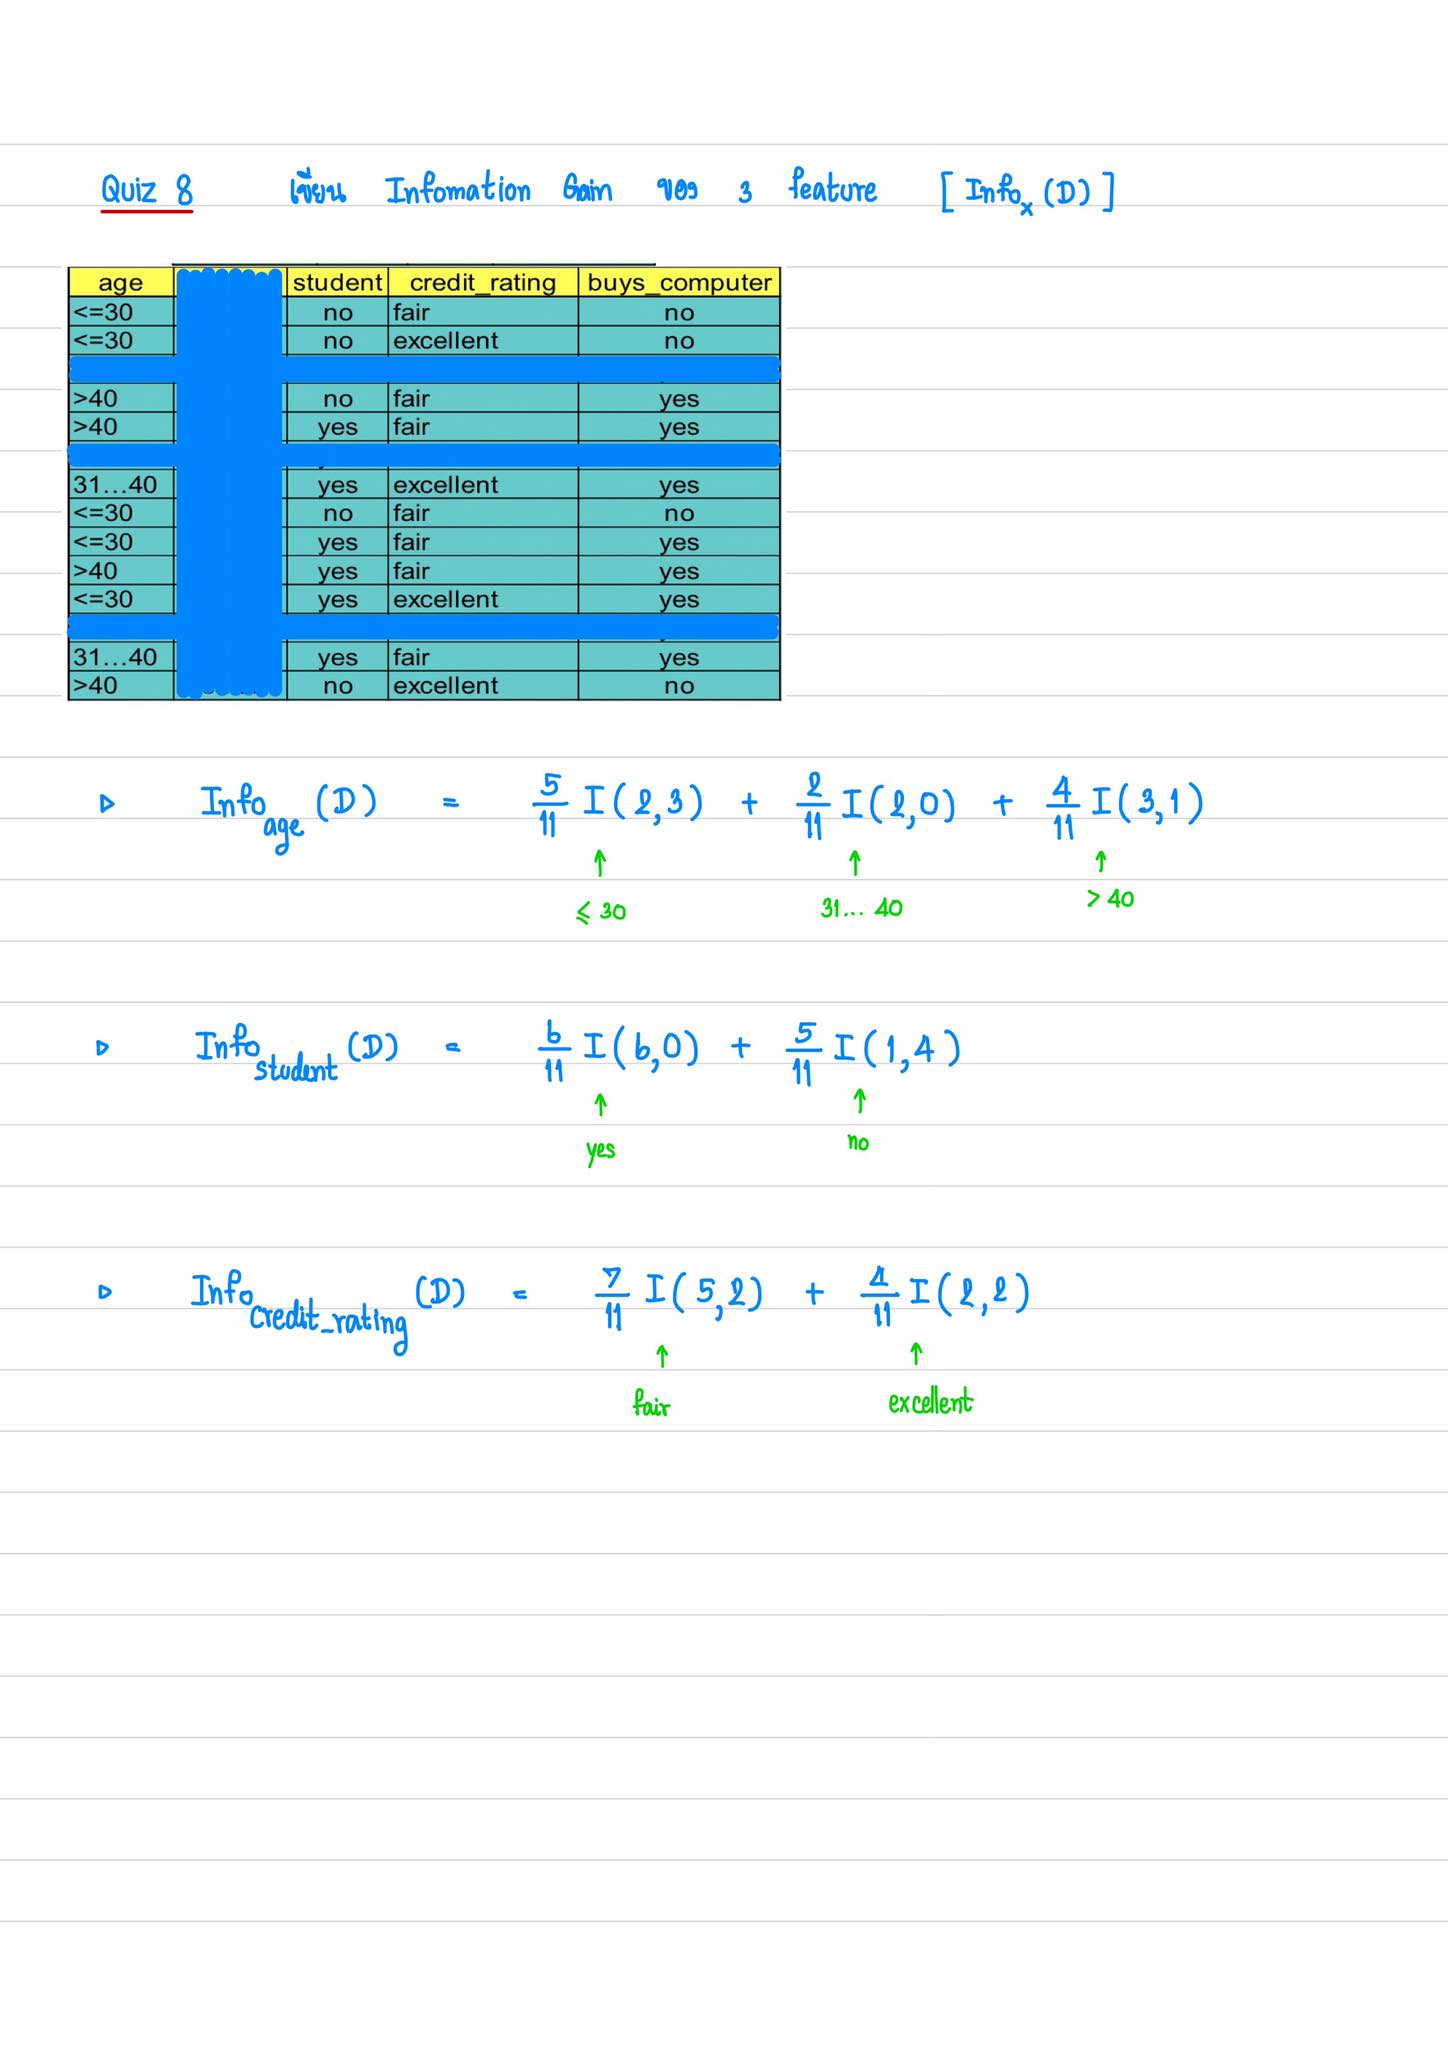 Quiz 8 เขียน Infomation Gain ของ 3 feature [ Info x (D) ]
age student credit_rating buys_computer
<=30 no fair no
<=30 no excellent no
>40 no fair yes
>40 yes fair yes
31…40 yes excellent yes
<=30 no fair no
<=30 yes fair yes
>40 yes fair yes
<=30 yes excellent yes
31…40 yes fair yes
>40 no excellent no
▷ Info age (D) = 5/11 I(2,3) + 2/11 I(2,0) + 4/11 I(3,1)
↑ ↑ ↑
≤ 30 31... 40 > 40
▷ Info student (D) = 6/11 I(6,0) + 5/11 I(1,4)
↑ ↑
yes no
▷ Info credit_rating (D) = 7/11 I(5,2) + 4/11 I(2,2)
↑ ↑
fair excellent